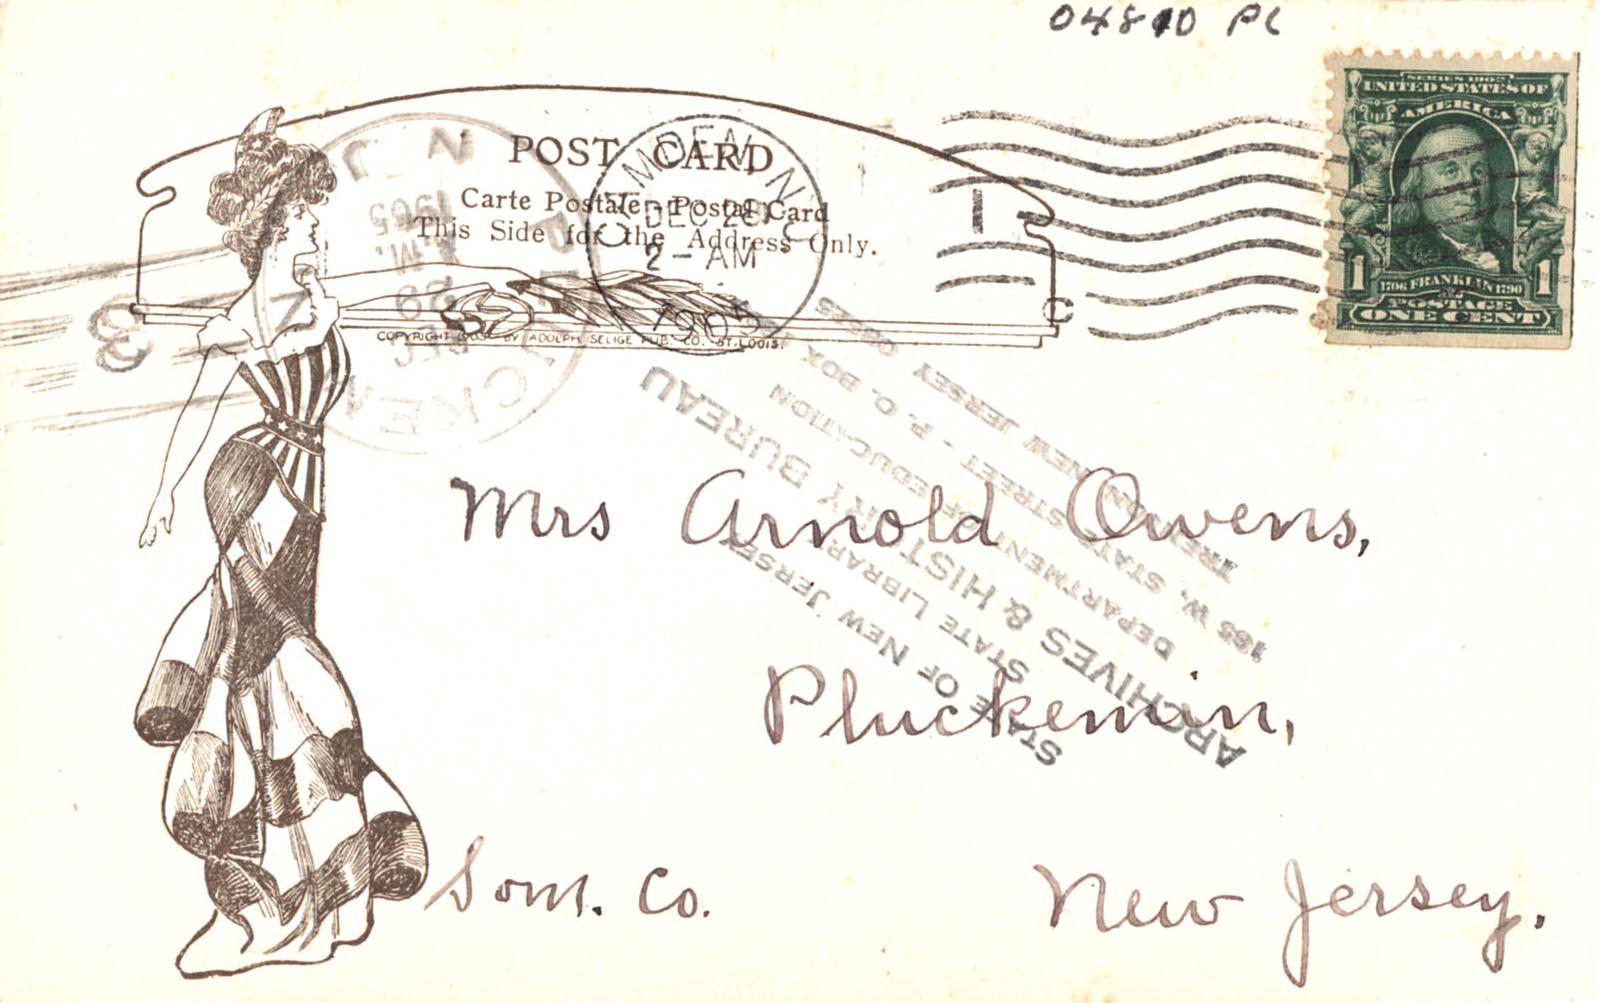 04810 PC
SERIES 1902
UNITED STATES OF
AMERICA
1 1706 FRANKLIN 1790 1
POSTAGE
ONE CENT
POST CARD
Carte Postale - Postal Card
This Side for the Address Only.
COPYRIGHT 1905 BY ADOLPH SELIGE PUB. CO. ST. LOUIS.
CAMDEN, N.J.
DEC 28
2 - AM
1905
1
C
PLUCKEMIN
N J
DEC
29
M.
1905
3
STATE OF NEW JERSEY
STATE LIBRARY
ARCHIVES & HISTORY BUREAU
DEPARTMENT OF EDUCATION
185 W. STATE STREET - P. O. BOX
TRENTON, NEW JERSEY 08625
Mrs Arnold Owens,
Pluckemin,
Som. Co.
New Jersey.